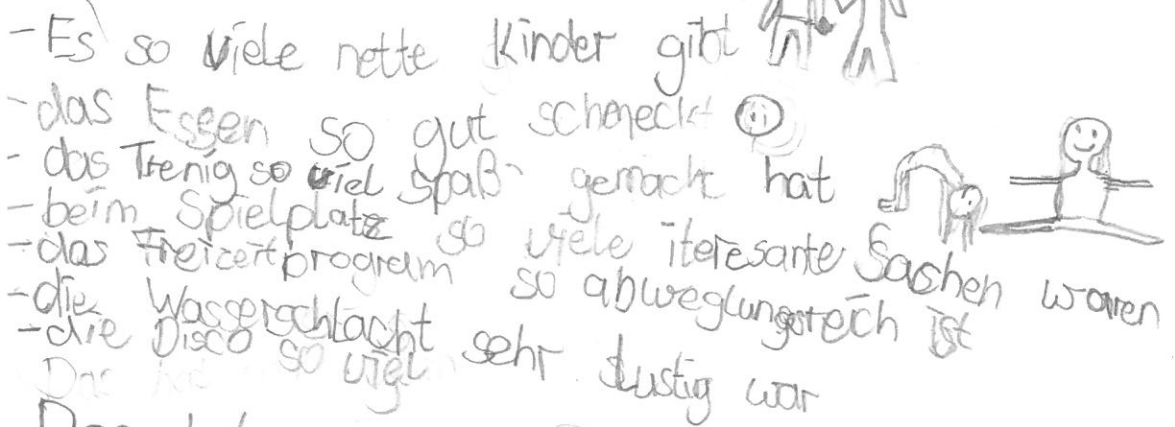 - Es so viele nette Kinder gibt
- das Essen so gut schmeckt
- das Trenig so viel spaß gemacht hat
- beim Spielplatz so viele iteresante Sachen waren
- das Freizeitprogram so abweglungsreich ist
- die Wasserschlacht sehr lustig war
- die Disco so viel
Das